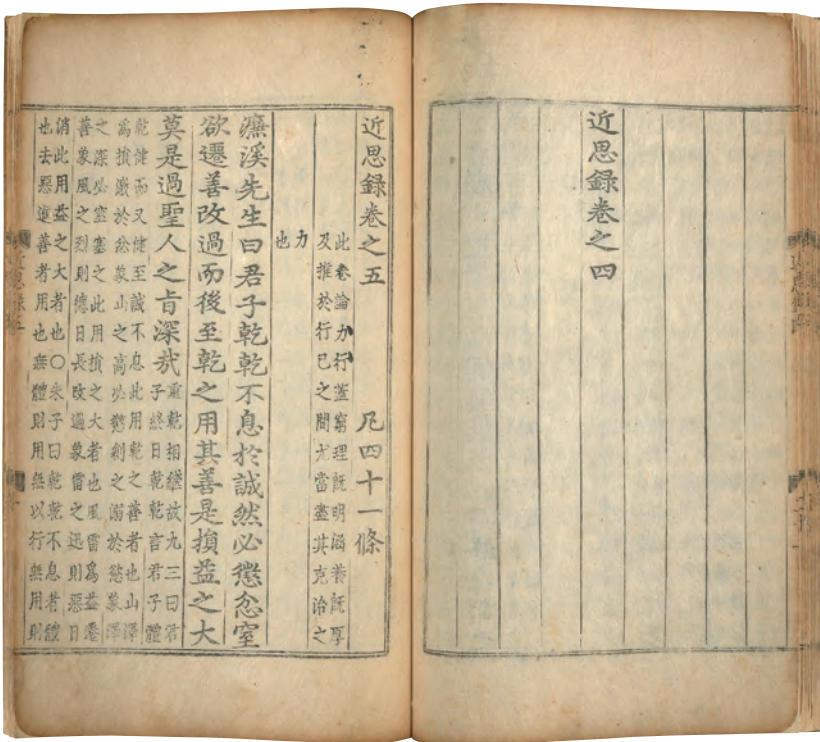 近思錄卷之四
近思錄卷之五 凡四十一條
此卷論力行蓋窮理既明涵養既厚
及推於行己之間尤當盡其克治之
力
也
濂溪先生曰君子乾乾不息於誠然必懲忿窒
欲遷善改過而後至乾之用其善是損益之大
莫是過聖人之旨深哉
重乾相繼故九三曰君
子終日乾乾言君子體
乾健而又健至誠不息此用乾之善者也山澤
爲損激於忿象山之高必懲創之溺於慾象澤
之深必窒塞之此用損之大者也風雷爲益遷
善象風之烈則德日長改過象雷之迅則惡日
消此用益之大者也○朱子曰乾乾不息者體
也去惡進善者用也無體則用無以行無用則